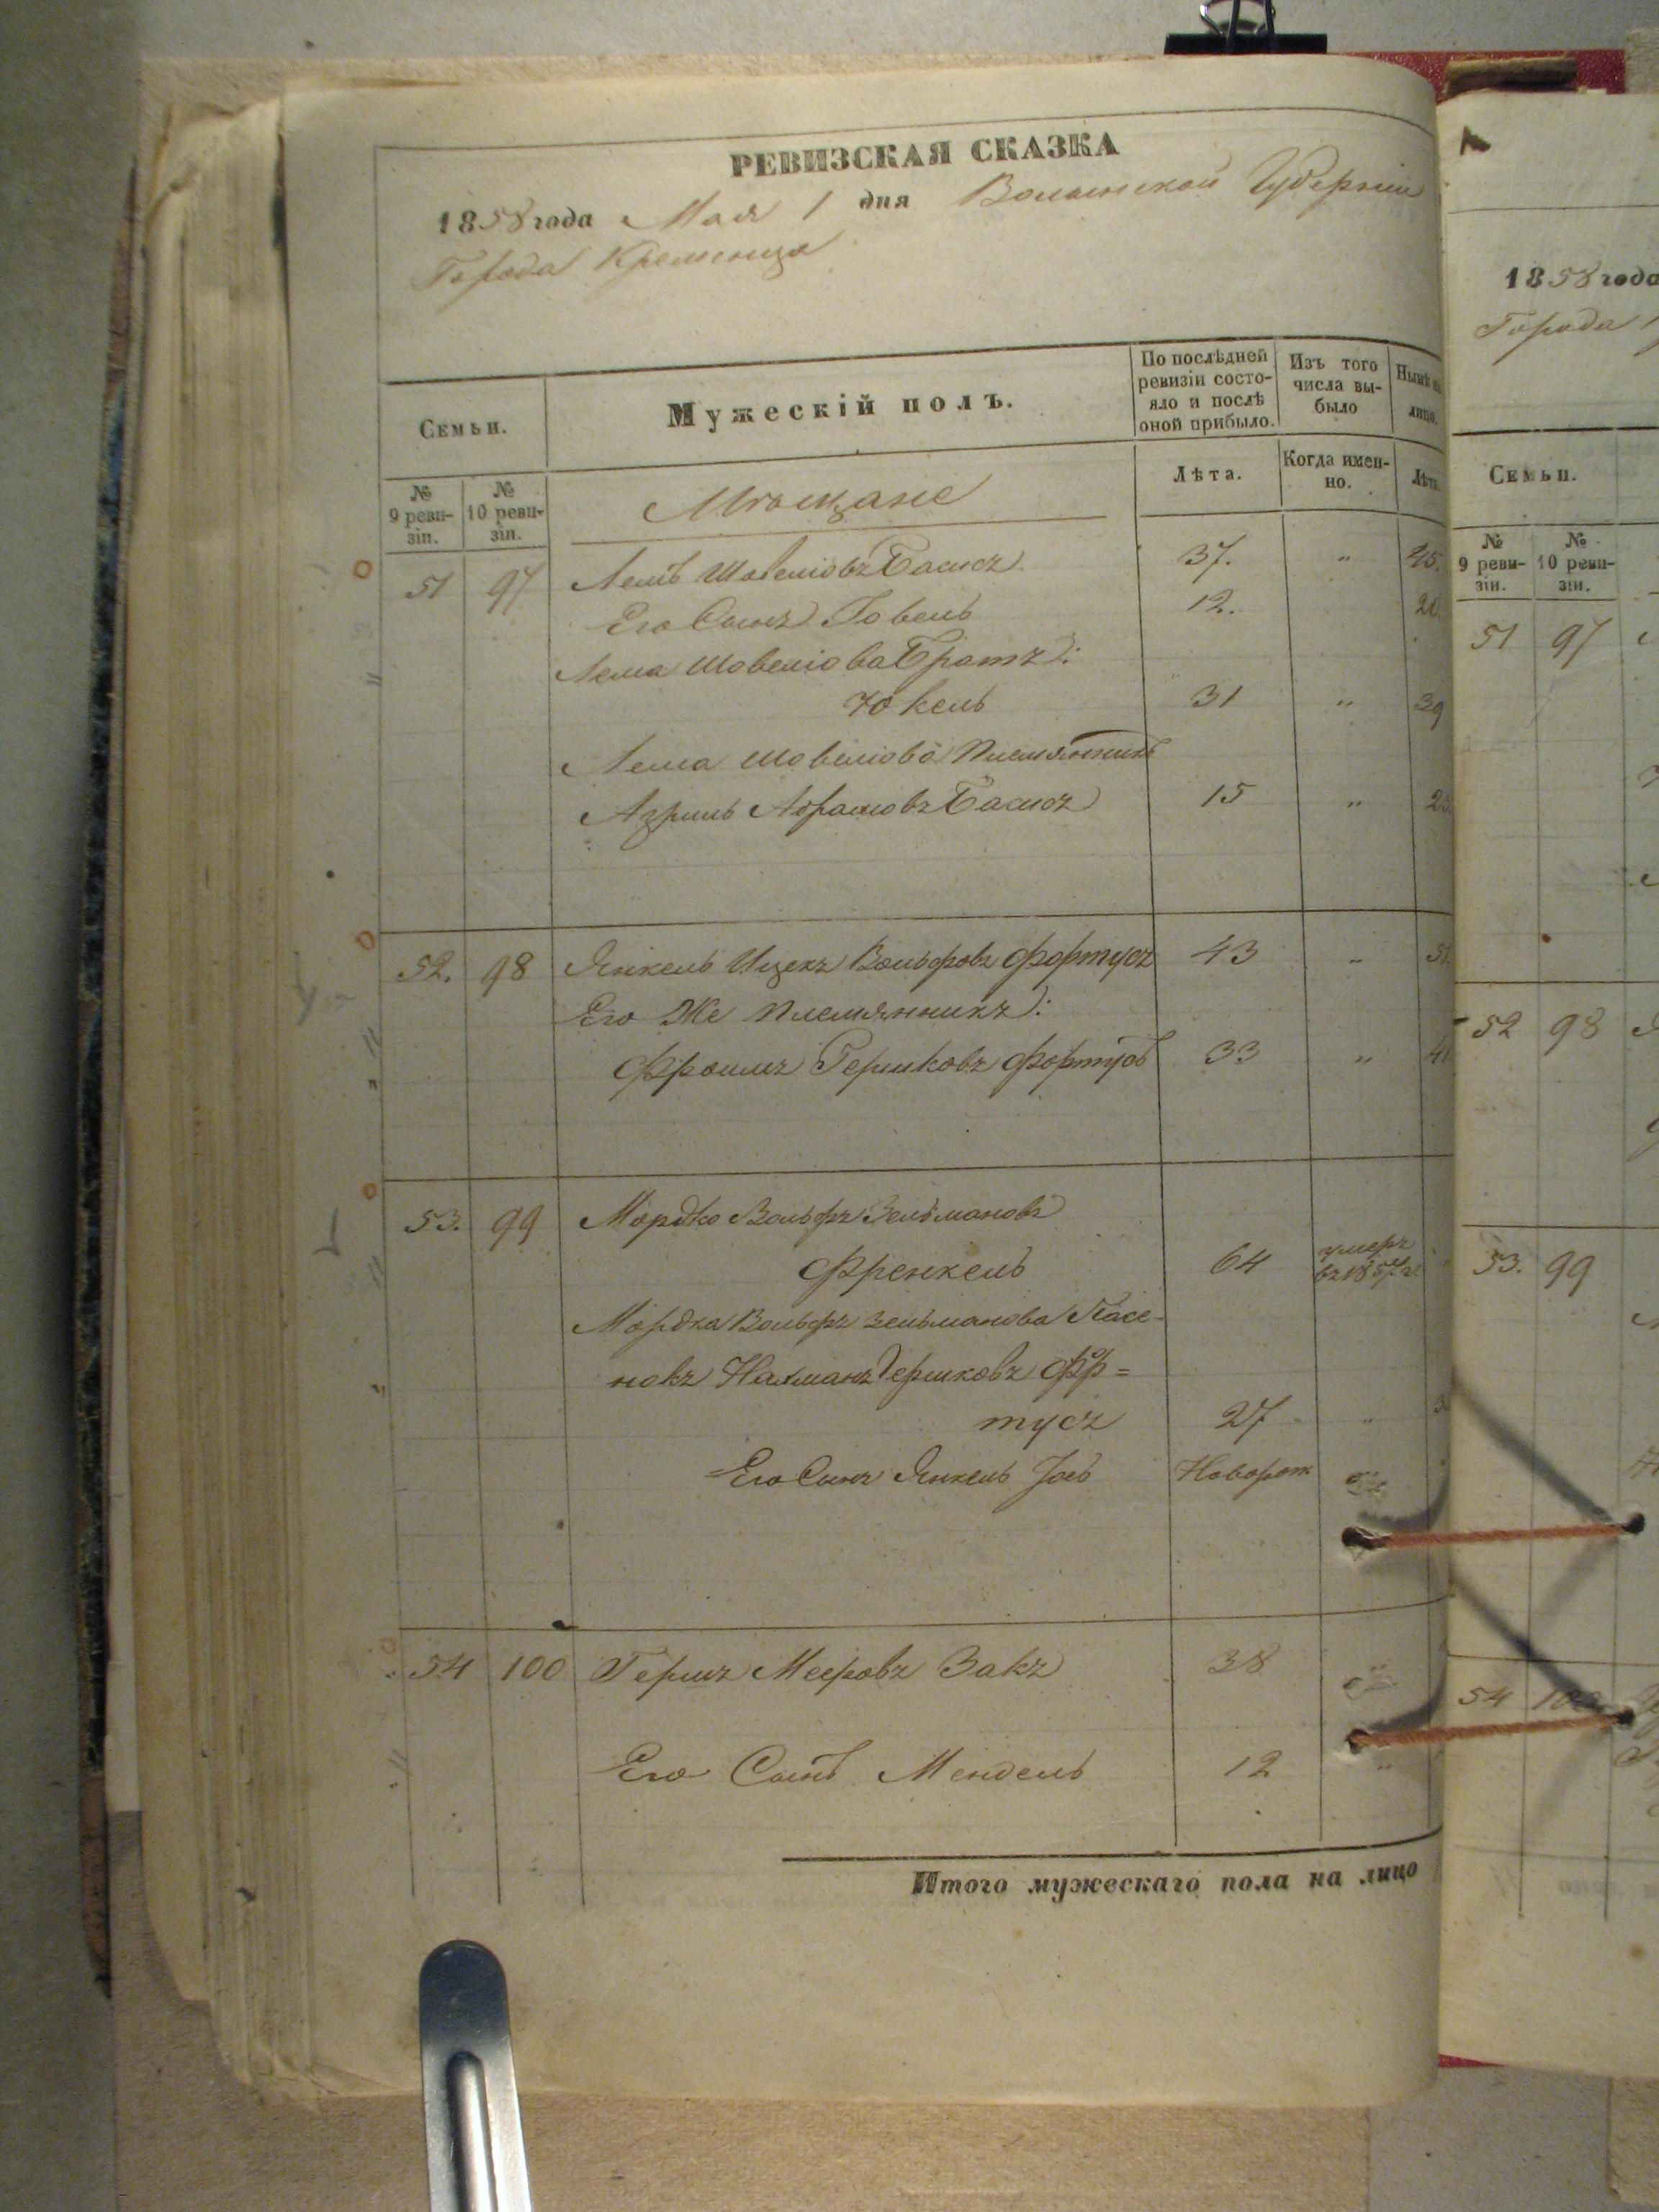 РЕВИЗСКАЯ СКАЗКА
1858 года Мая 1 дня Волынской Губернии
Города Кременца
Семьи.
Мужескій полъ.
По послѣдней ревизіи состо-
яло и послѣ оной прибыло.
Изъ того числа вы-
было
Нынѣ на лицо.
№ 9 реви-
зіи.
№ 10 реви-
зіи.
Мѣщане
Лѣта.
Когда имен-
но.
Лѣта.
51 97 Шовеліовъ Басисъ 37. " 45.
Его Сынъ Говель 12. 20
Лема Шовеліова Братъ:
Юкель 31 " 39
Лема Шовеліова Племянникъ
Азриль Абрамовъ Басисъ 15 " 23
52. 98 Янкель Ицекъ Вольфовъ Фортусъ 43 " 51.
Его Же Племянникъ:
Фроимъ Гершковъ Фортусъ 33 " 41
53. 99 Мордко Вольфъ Зельмановъ
Френкель 64 умеръ въ 1857 г.
Мордка Вольфъ Зельманова Пасе-
нокъ Нахманъ Гершковъ Фор=
тусъ 27 "
Его Сынъ Янкель Іось Новорож
54 100 Гершъ Мееровъ Закъ 38 "
Его Сынъ Мендель 12 "
Итого мужескаго пола на лицо
1858 года
Города
Семьи.
№ 9 реви-
зіи.
№ 10 реви-
зіи.
51 97
52 98
53. 99
54 100